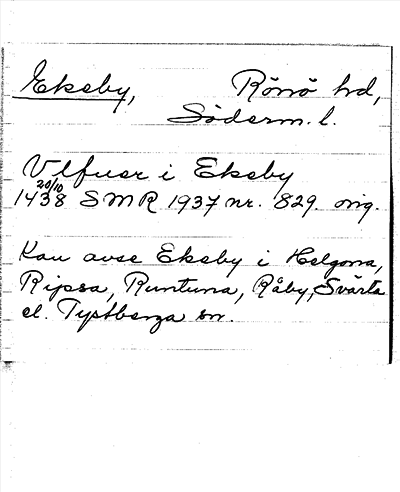 Ekeby, Rönö hd,
Söderm. l.
Vlfuer i Ekeby
20/10
1438 SMR 1937 nr. 829. orig.
Kan avse Ekeby i Helgona,
Ripsa, Runtuna, Råby, Svärta
el. Tystberga sn.